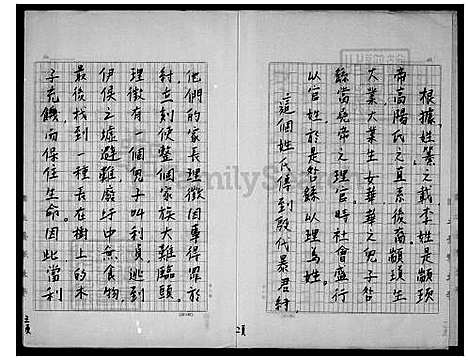 根據姓纂之載李姓是顓頊
帝高陽氏之直系後裔，顓頊生
大業大業生女華，女華之兒子咎
繇當堯帝之理官，時社會盛行
以官姓，於是咎繇以理為姓。
這個姓氏傳到殷代暴君紂，
他們的家長理徵因事得罪於
紂立刻使整個家族大難臨頭。
理徵有一個兒子叫利貞，逃到
伊侯之墟避難廢圩中無食物，
最後找到一種長在樹上的木
子充饑，而保住生命。因此，當利
2頁
3頁
FamilySearch